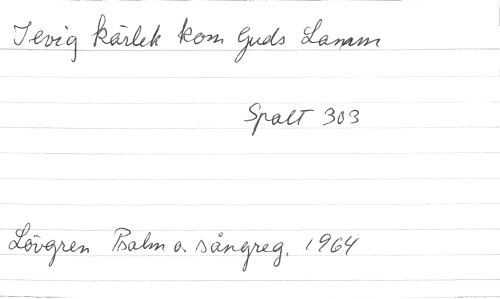 I evig kärlek kom Guds Lamm
Spalt 303
Lövgren Psalm o. sångreg. 1964